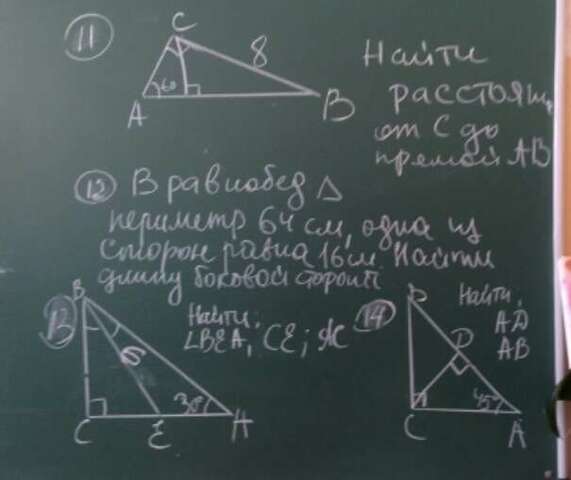 11
C
8
60
A
B
Найти
расстоян.
от С до
прямой АВ
12 В равнобед △
периметр 64 см, одна из
сторон равна 16 см Найти
длину боковой
13
B
Найти:
∠BEA, CE; AC
30°
C
E
A
14
B
Найти,
AD
AB
D
45°
C
A